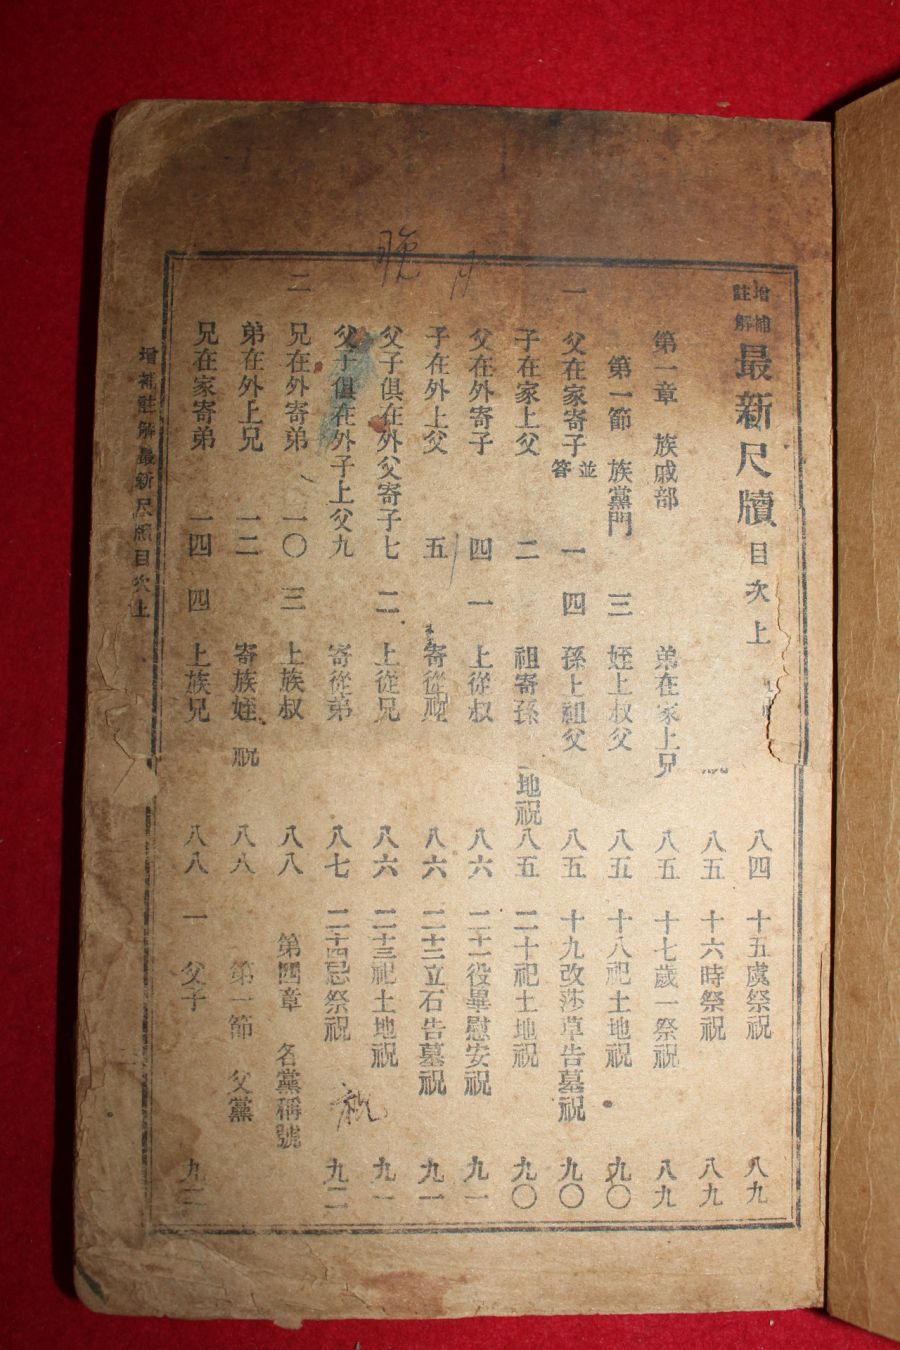 增補註解 最新尺牘 目次 上 八四 十五虞祭祝 八九
八五 十六時祭祝 八九
第一章 族戚部 弟在家上兄 八五 十七歲一祭祝 八九
第一節 族黨門 三 姪上叔父 八五 十八祀土地祝 九〇
一 父在家寄子 並答 一 四 孫上祖父 八五 十九改莎草告墓祝 九〇
子在家上父 二 祖寄孫 地祝 八五 二十祀土地祝 九〇
父在外寄子 四 一 上從叔 八六 二十一役畢慰安祝 九一
子在外上父 五 寄從 八六 二十二立石告墓祝 九一
父子俱在外父寄子 七 二 上從兄 八六 二十三祀土地祝 九一
父子俱在外子上父 九 寄從弟 八七 二十四忌祭祝 九二
二 兄在外寄弟 一〇 三 上族叔 八八 第四章 名黨稱號
弟在外上兄 一二 寄族姪 祝 八八 第一節 父黨
兄在家寄弟 一四 四 上族兄 八八 一 父子 九二
增補註解最新尺牘目次上